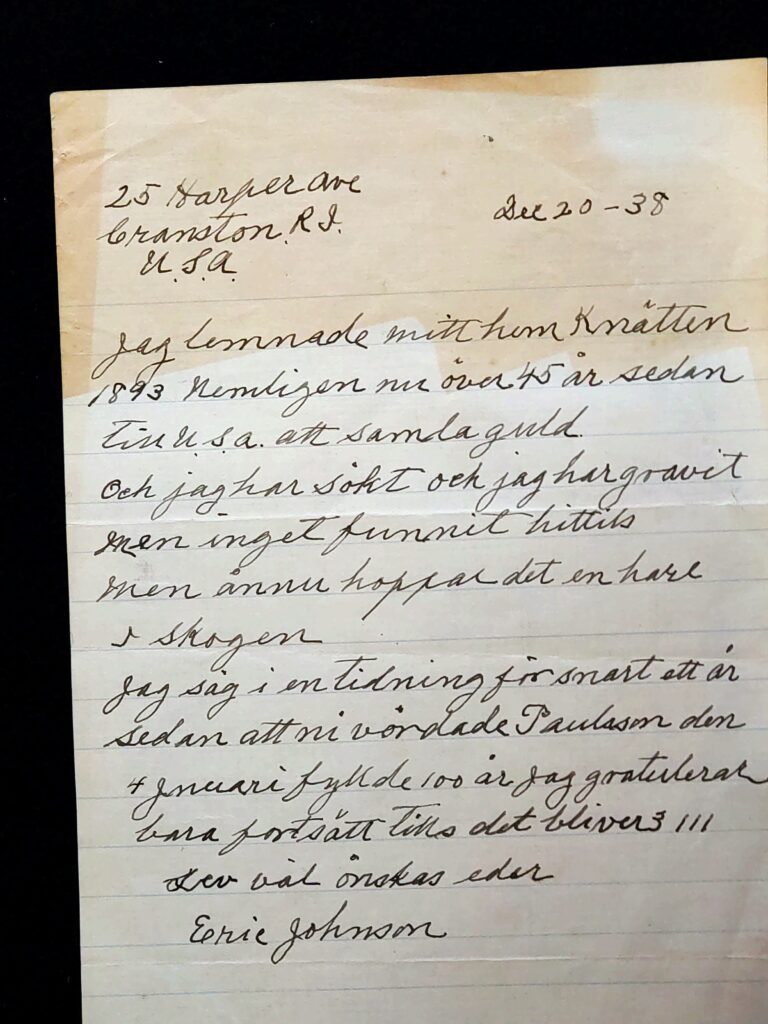 25 Harper Ave
Cranston, R.I.
U.S.A.
Dec 20 - 38
Jag lemnade mitt hem Knätten
1893 Nemligen nu över 45 år sedan
till U.S.a. att samla guld.
Och jag har sökt och jag har gravit
men inget funnit hittils
men ännu hoppar det en hare
i skogen
Jag såg i en tidning för snart ett år
sedan att ni vördade Paulsson den
4 Jnuari fyllde 100 år Jag gratulerar
bara fortsätt tills det bliver 3 111
Lev väl önskas eder
Eric Johnson